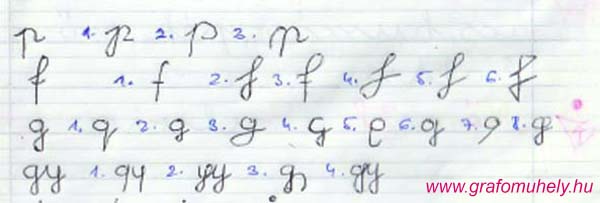 p 1. p 2. p 3. p
f 1. f 2. f 3. f 4. f 5. f 6. f
g 1. g 2. g 3. g 4. g 5. g 6. g 7. g 8. g
gy 1. gy 2. gy 3. gy 4. gy
www.grafomuhely.hu